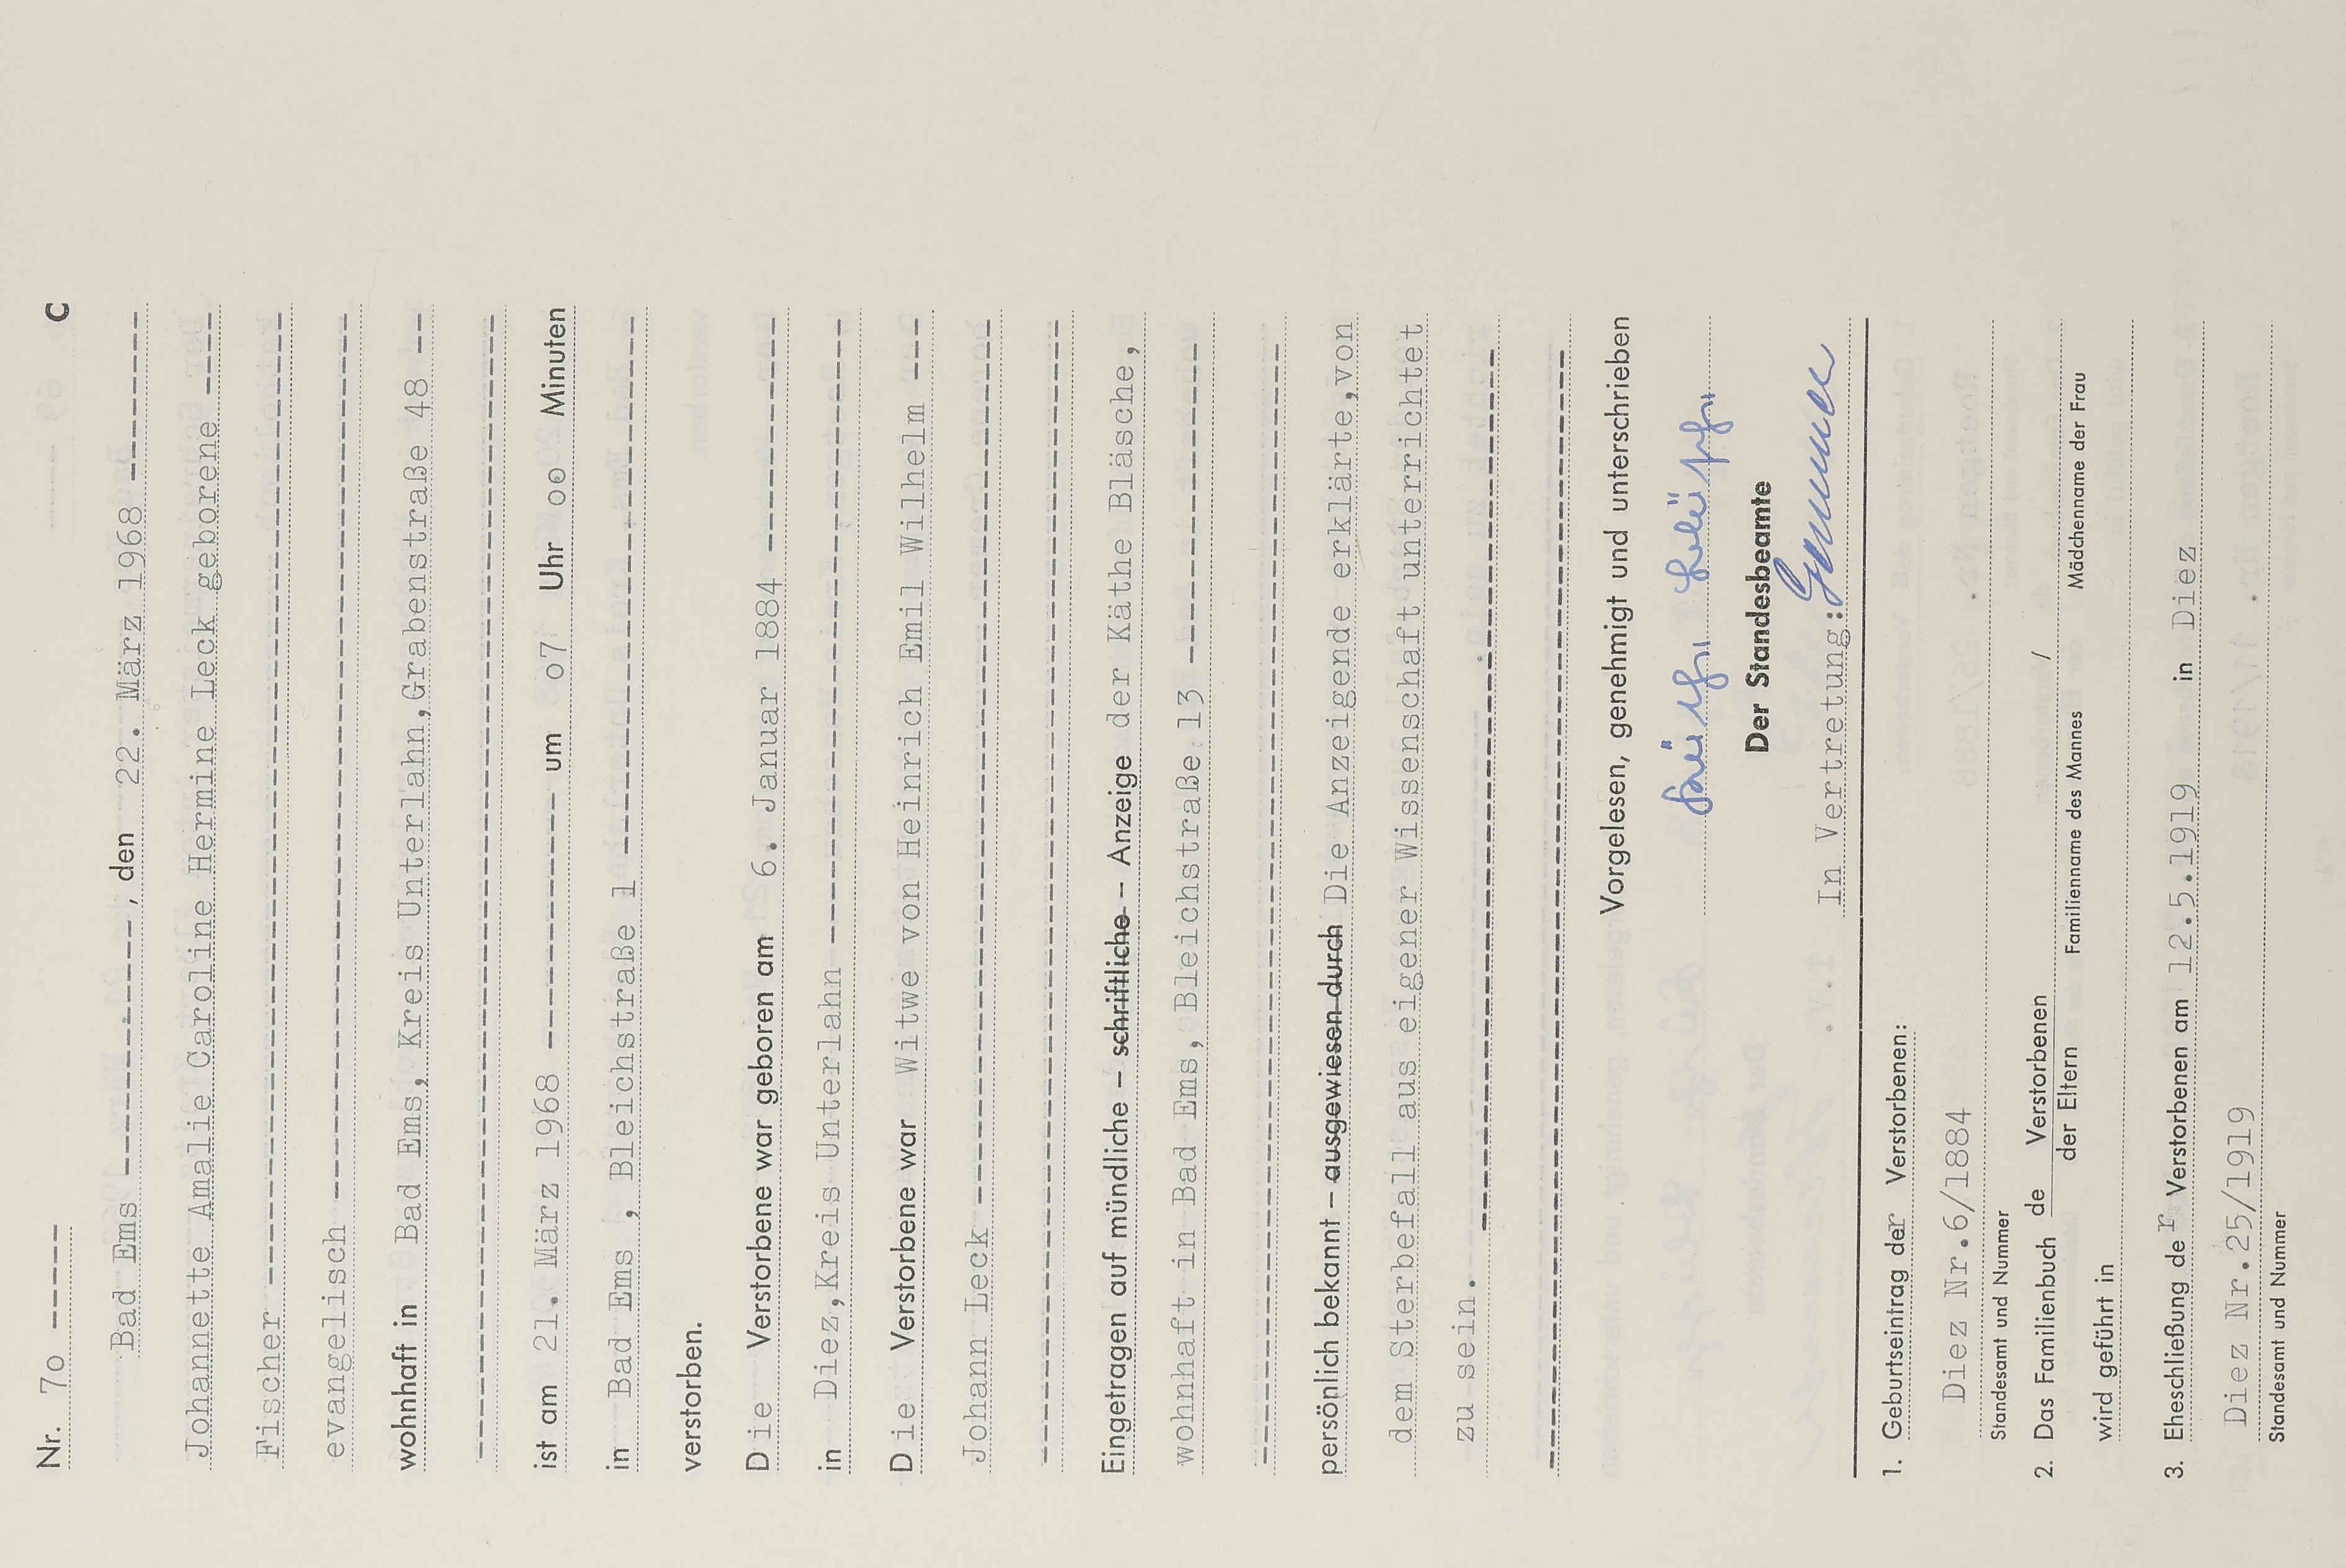 Nr. 7o ------ C
Bad Ems ----------------, den 22. März 1968 ----------
Johannette Amalie Caroline Hermine Leck geborene ----
Fischer ----------------------------------------------
evangelisch ------------------------------------------
wohnhaft in Bad Ems, Kreis Unterlahn,Grabenstraße 48 ---
------------------------------------------------------
ist am 21. März 1968 --------------- um o7 Uhr oo Minuten
in Bad Ems , Bleichstraße 1 --------------------------
verstorben.
Die Verstorbene war geboren am 6. Januar 1884 ------------
in Diez,Kreis Unterlahn ------------------------------
Die Verstorbene war Witwe von Heinrich Emil Wilhelm ---
Johann Leck ------------------------------------------
------------------------------------------------------
Eingetragen auf mündliche – schriftliche – Anzeige der Käthe Bläsche,
wohnhaft in Bad Ems, Bleichstraße 13 -----------------
------------------------------------------------------
persönlich bekannt – ausgewiesen durch Die Anzeigende erklärte,von
dem Sterbefall aus eigener Wissenschaft unterrichtet
zu sein. ---------------------------------------------
------------------------------------------------------
Vorgelesen, genehmigt und unterschrieben
Der Standesbeamte
In Vertretung:
1. Geburtseintrag der Verstorbenen:
Diez Nr.6/1884
Standesamt und Nummer
2. Das Familienbuch de Verstorbenen /
der Eltern Familienname des Mannes Mädchenname der Frau
wird geführt in
3. Eheschließung der Verstorbenen am 12.5.1919 in Diez
Diez Nr.25/1919
Standesamt und Nummer